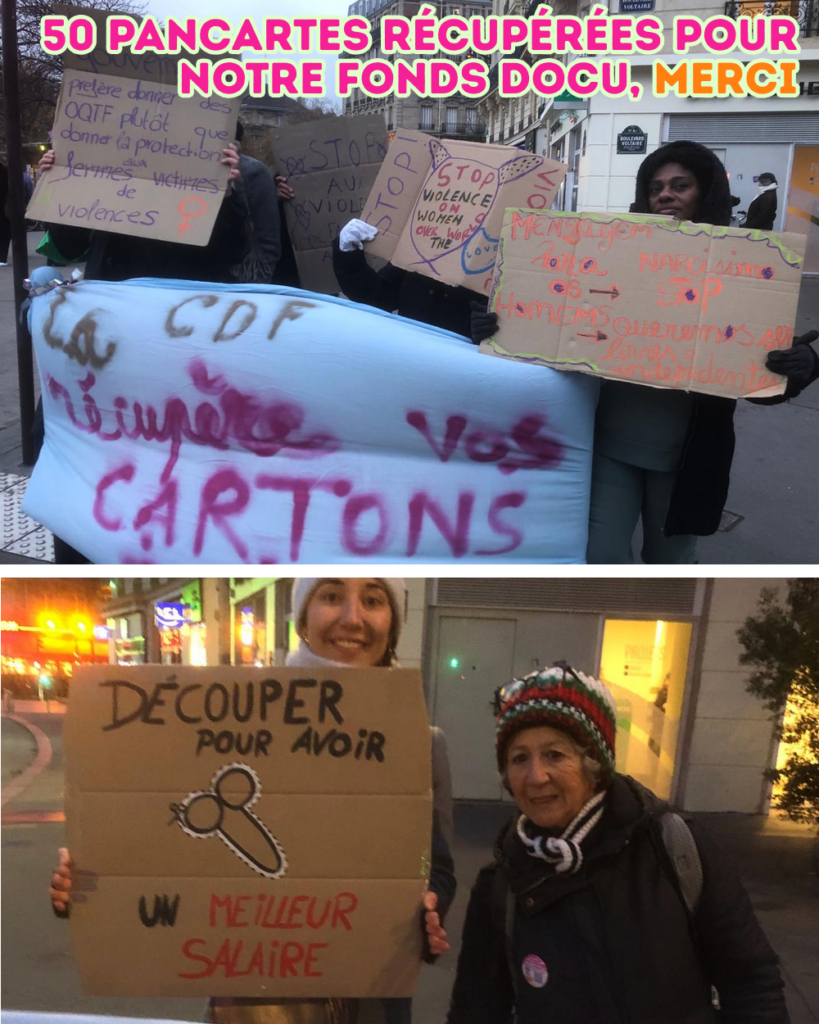 50 PANCARTES RÉCUPÉRÉES POUR
NOTRE FONDS DOCU, MERCI
BOULEVARD
VOLTAIRE
préfère donner des
OQTF plutôt que
donner la protection
aux
femmes victimes
de
violences
STOP
AU
VIOLE
STOP!
STOP
VIOLENCE
ON
WOMEN
OVER WORLD
THE
LOVE
VIOL
MENSAGEM
PARA NARCISIMO
OS → STOP
HOMEMS → queremos ser
livres e
independentes
La CDF
récupère vos
CARTONS
DÉCOUPER
POUR AVOIR
UN MEILLEUR
SALAIRE